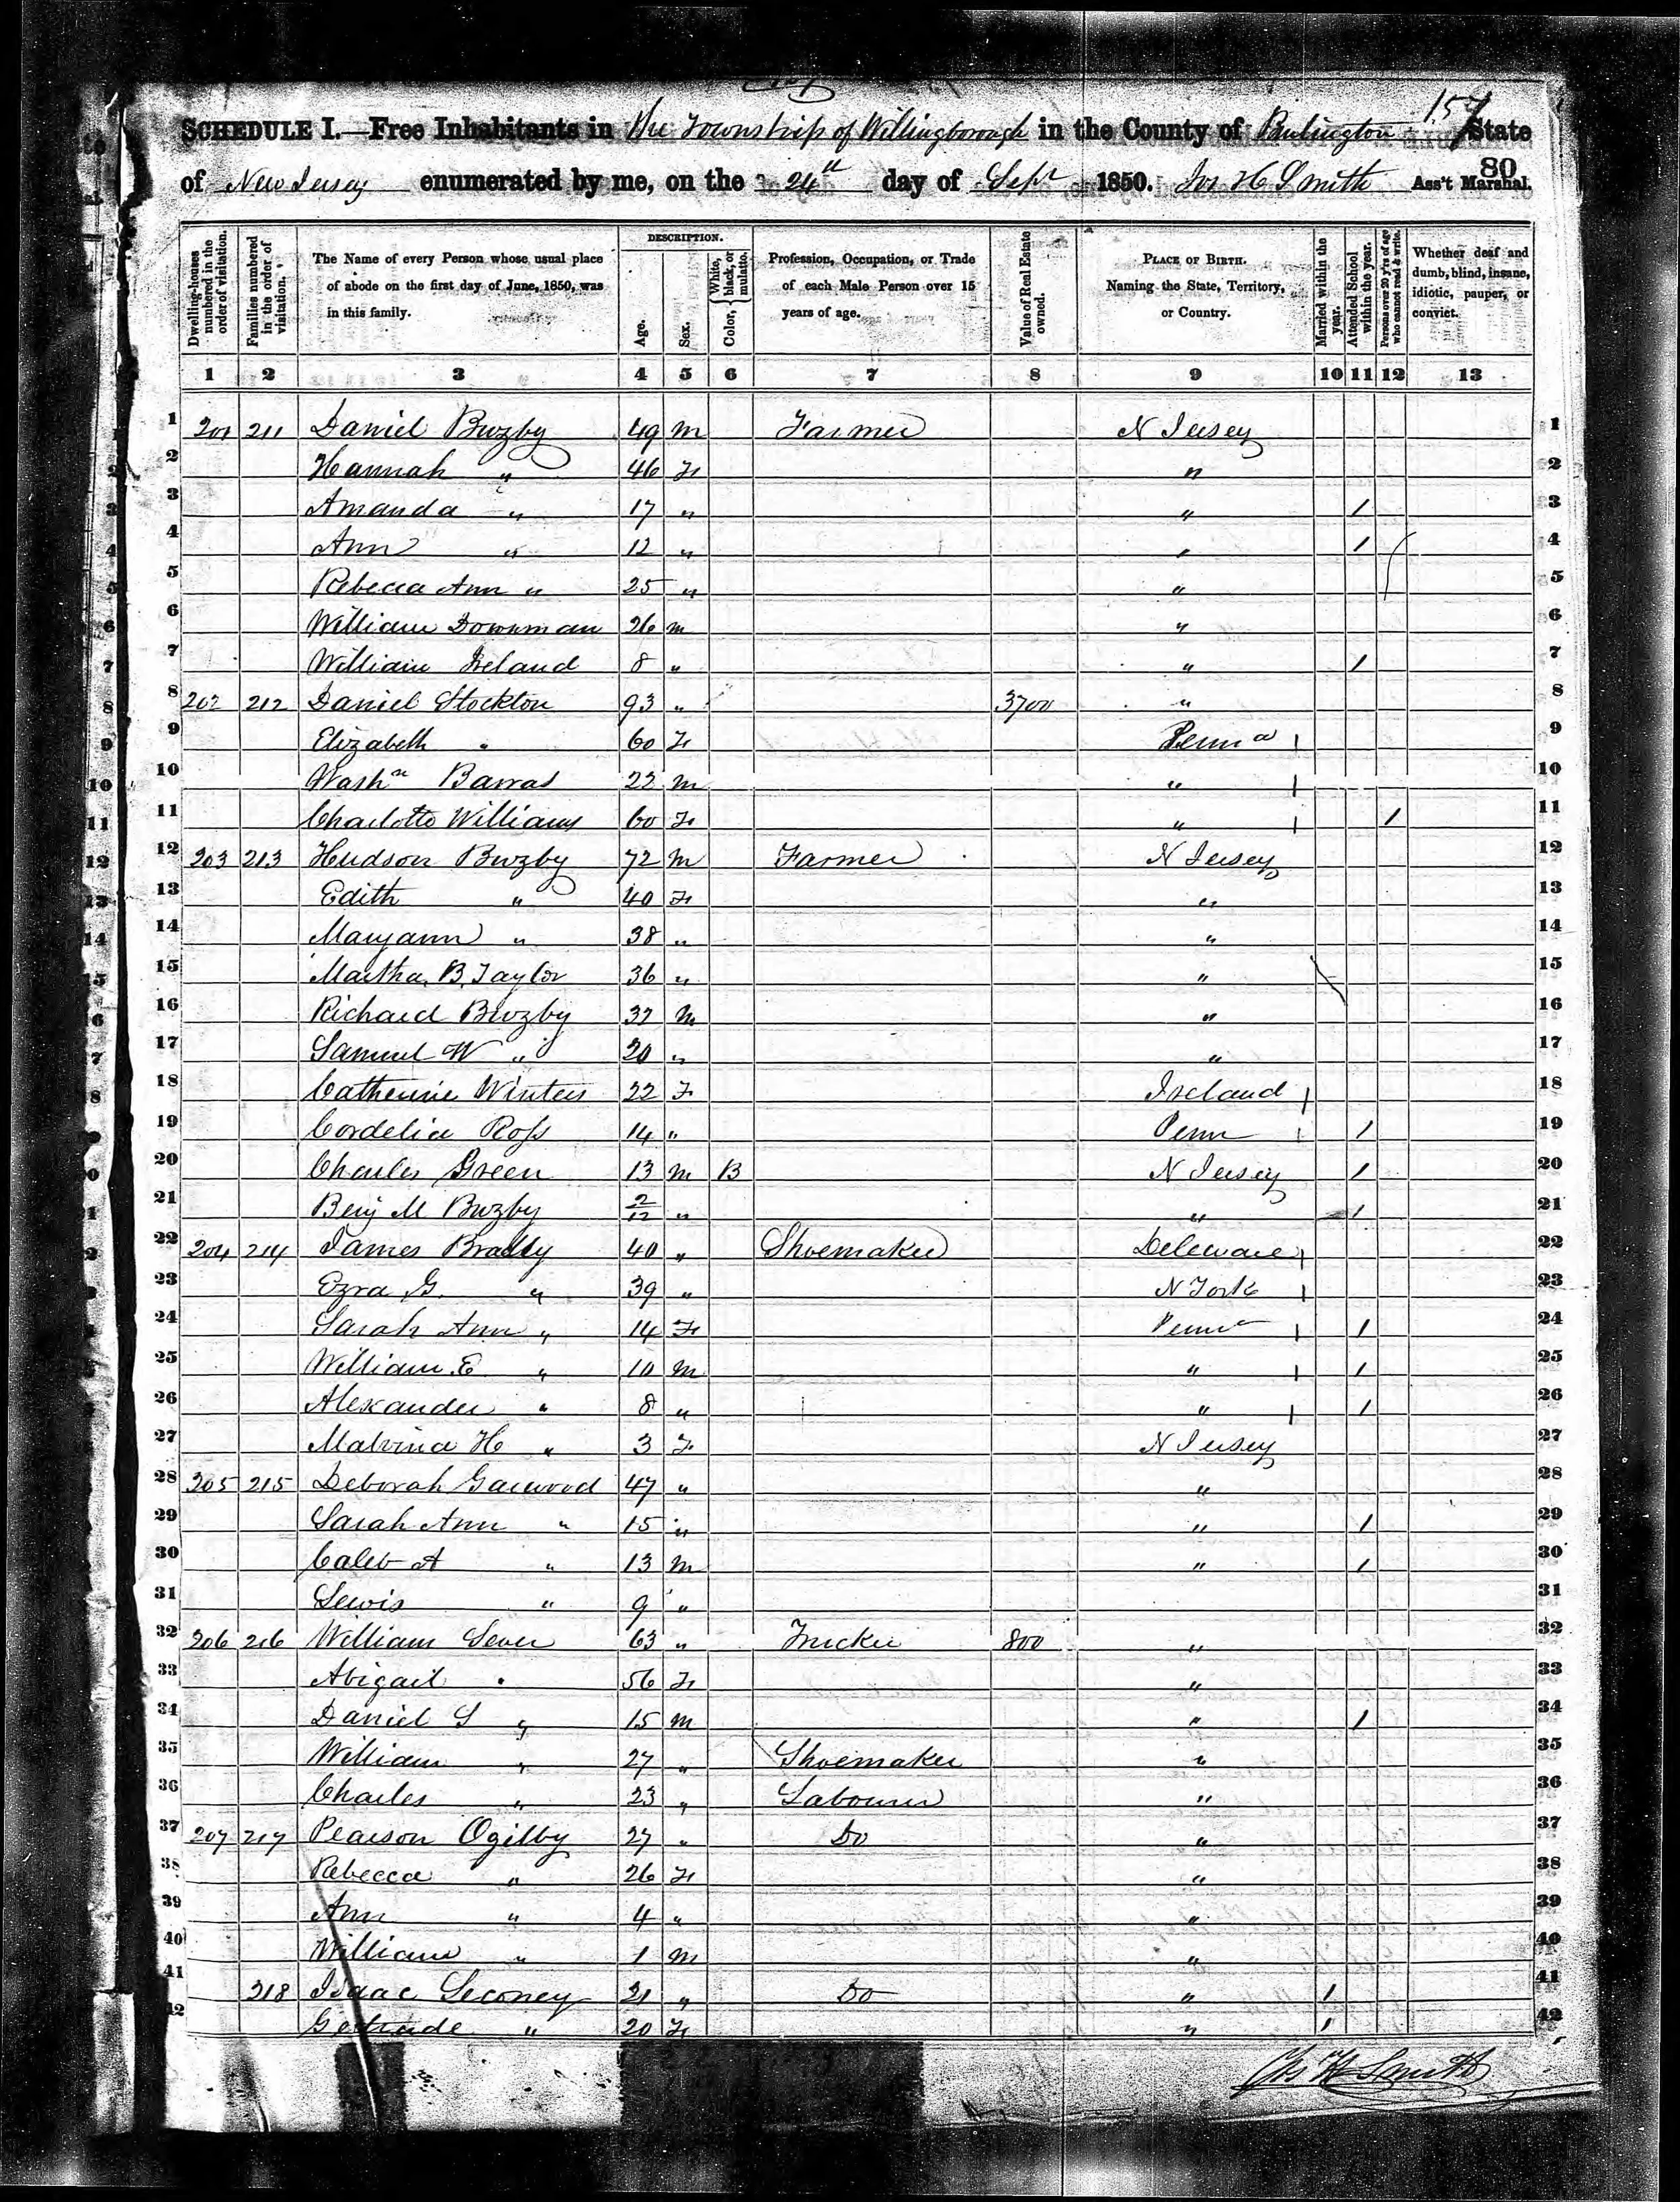 157
SCHEDULE I.—Free Inhabitants in the Township of Willingborough in the County of Burlington State
of New Jersey enumerated by me, on the 24th day of Sept 1850. Jos H Smith Ass't Marshal.
80
DESCRIPTION.
Dwelling-houses numbered in the order of visitation. Families numbered in the order of visitation. The Name of every Person whose usual place of abode on the first day of June, 1850, was in this family. Age. Sex. Color, {White, black, or mulatto. Profession, Occupation, or Trade of each Male Person over 15 years of age. Value of Real Estate owned. PLACE OF BIRTH. Naming the State, Territory, or Country. Married within the year. Attended School within the year. Persons over 20 y'rs of age who cannot read & write. Whether deaf and dumb, blind, insane, idiotic, pauper, or convict.
1 2 3 4 5 6 7 8 9 10 11 12 13
1 201 211 Daniel Buzby 49 M Farmer N Jersey 1
2 Hannah " 46 F " 2
3 Amanda " 17 " " / 3
4 Ann " 12 " " / 4
5 Rebecca Ann " 25 " " 5
6 William Bowman 26 M " 6
7 William Ireland 8 " " / 7
8 202 212 Daniel Stockton 93 " 3700 " 8
9 Elizabeth " 60 F Penna 9
10 Washn Barras 22 M " 10
11 Charlotte Williams 60 F " / 11
12 203 213 Hudson Buzby 72 M Farmer N Jersey 12
13 Edith " 40 F " 13
14 Maryann " 38 " " 14
15 Martha B. Taylor 36 " " 15
16 Richard Buzby 32 M " 16
17 Samuel W " 20 " " 17
18 Catherine Winters 22 F Ireland 18
19 Cordelia Ross 14 " Penn / 19
20 Charles Green 13 M B N Jersey / 20
21 Benj M Buzby 2/12 " " / 21
22 204 214 James Bradly 40 " Shoemaker Deleware 22
23 Ezra G. " 39 " N York 23
24 Sarah Ann " 14 F Penna / 24
25 William E " 10 M " / 25
26 Alexander " 8 " " / 26
27 Malvina H " 3 F N Jersey 27
28 205 215 Deborah Garwood 47 " " 28
29 Sarah Ann " 15 " " / 29
30 Caleb A " 13 M " / 30
31 Lewis " 9 " 31
32 206 216 William Sever 63 " Trucker 800 " 32
33 Abigail " 56 F " 33
34 Daniel S " 15 M " / 34
35 William " 27 " Shoemaker " 35
36 Charles " 23 " Labourer " 36
37 207 217 Pearson Ogilby 27 " Do " 37
38 Rebecca " 26 F " 38
39 Ann " 4 " " 39
40 William " 1 M " 40
41 218 Isaac Leconey 21 " Do " / 41
42 Gertrude " 20 F " / 42
Jos H Smith